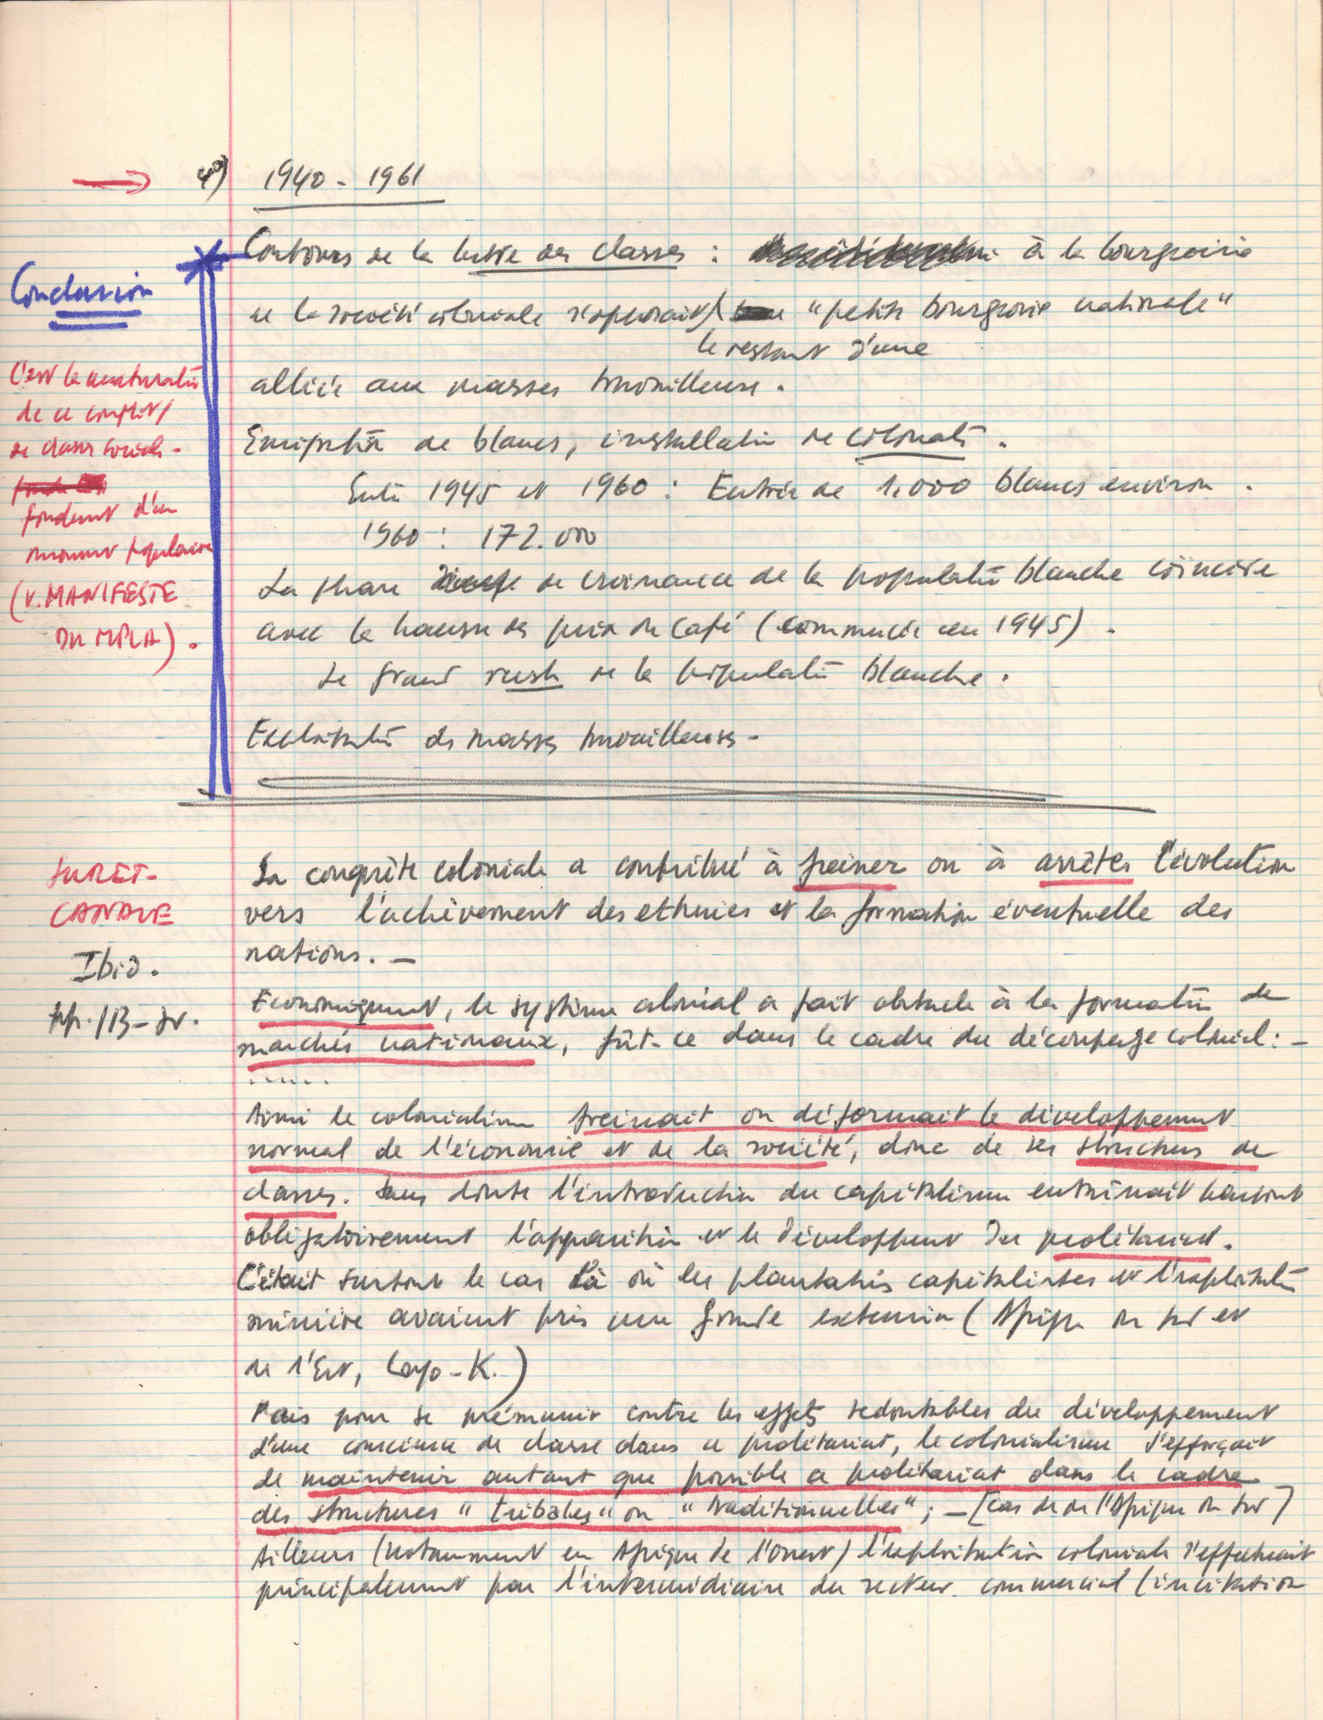 4º) 1940 - 1961
Contours de la lutte des classes : à la bourgeoisie
de la société coloniale s'opposait "petite bourgeoisie nationale"
le restant d'une
alliée aux masses travailleuses.
Emigration de blancs, installation de colonats.
Entre 1945 et 1960 : Entrée de 1.000 blancs environ.
1960 : 172.000
La phase de croissance de la population blanche coïncide
avec la hausse des prix du café (commencée en 1945).
Le grand rush de la population blanche.
Exploitation des masses travailleuses -
Conclusion
C'est la
de ce conflit
de classes sociales -
fondement d'un
mouvement populaire
(V. MANIFESTE
DU MPLA).
SURET-
CANALE
Ibid.
pp. 113-
La conquête coloniale a contribué à freiner ou à arrêter l'évolution
vers l'achèvement des ethnies et la formation éventuelle des
nations. -
Economiquement, le système colonial a fait obstacle à la formation de
marchés nationaux, fût-ce dans le cadre du découpage colonial : -
......
Ainsi le colonialisme freinait ou déformait le développement
normal de l'économie et de la société, donc de ses structures de
classes. Sans doute l'introduction du capitalisme entraînait partout
obligatoirement l'apparition et le développement du prolétariat.
C'était surtout le cas là où les plantations capitalistes et l'exploitation
minière avaient pris une grande extension (Afrique du Sud et
de l'Est, Congo-K.)
Mais pour se prémunir contre les effets redoutables du développement
d'une conscience de classe dans ce prolétariat, le colonialisme s'efforçait
de maintenir autant que possible ce prolétariat dans le cadre
des structures "tribales" ou "traditionnelles" ; - [cas de l'Afrique du Sud]
Ailleurs (notamment en Afrique de l'Ouest) l'exploitation coloniale s'effectuait
principalement par l'intermédiaire du secteur commercial (incitation